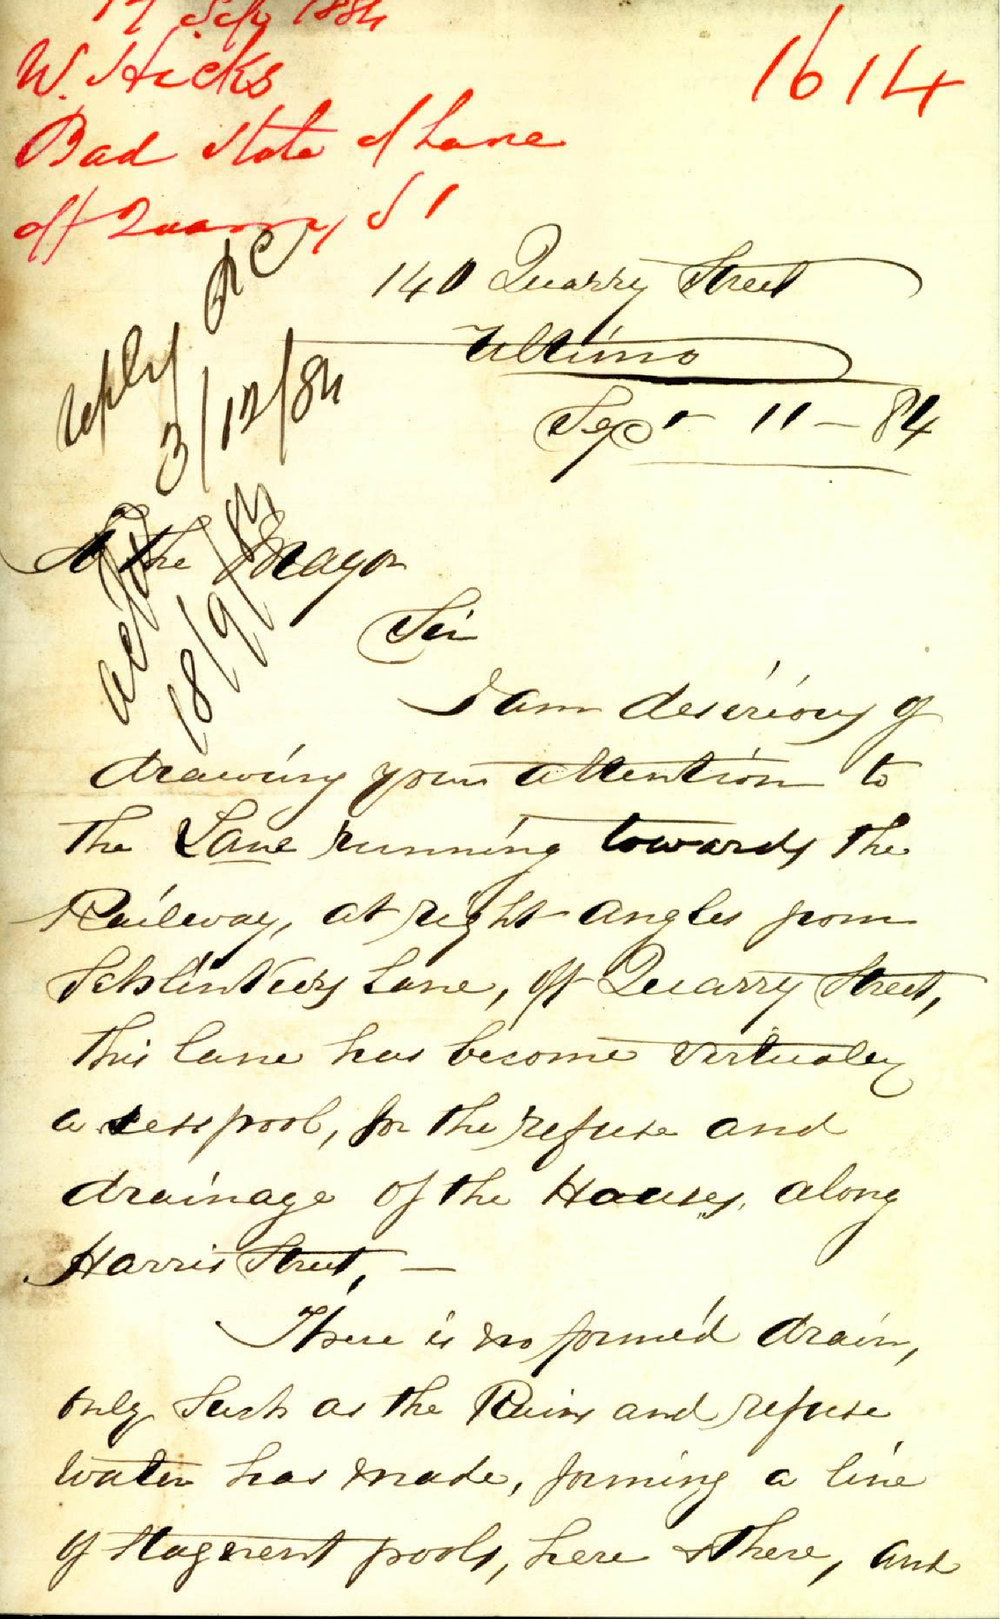 17 Sep 1884
W. Hicks
Bad State of Lane
off Quarry St
1614
140 Quarry Street
Ultimo
Sepr 11 - 84
reply
3/12/84
18/9/84
To the Mayor
Sir
I am desirious of
drawing your attention to
the Lane running towards the
Railway, at right angles from
Lane, off Quarry Street,
this lane has become virtualey
a cesspool, for the refuse and
drainage of the Houses, along
Harris Street, —
There is no form'd drain,
only such as the Rains and refuse
water has made, forming a line
of Stagnent pools, here & there, and